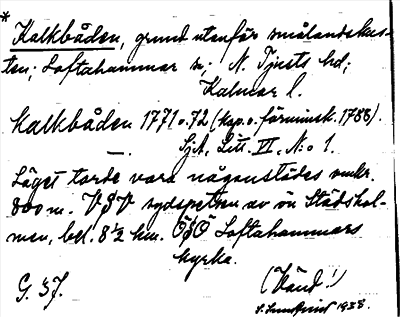 * Kalkbåden, grund utanför smålandskus-
ten; Loftahammar sn; N. Tjusts hd;
Kalmar l.
Kalkbåden 1771 o. 72 (kop. o. förminsk. 1788).
Sjk, Litt. VI, N:o 1.
Läget torde vara någonstädes under.
800 m. VSV sydspetsen av ön Städshol-
men, bel. 8 1/2 km. ÖSÖ Loftahammars
kyrka.
G. 3J. (Vänd!)
1938.